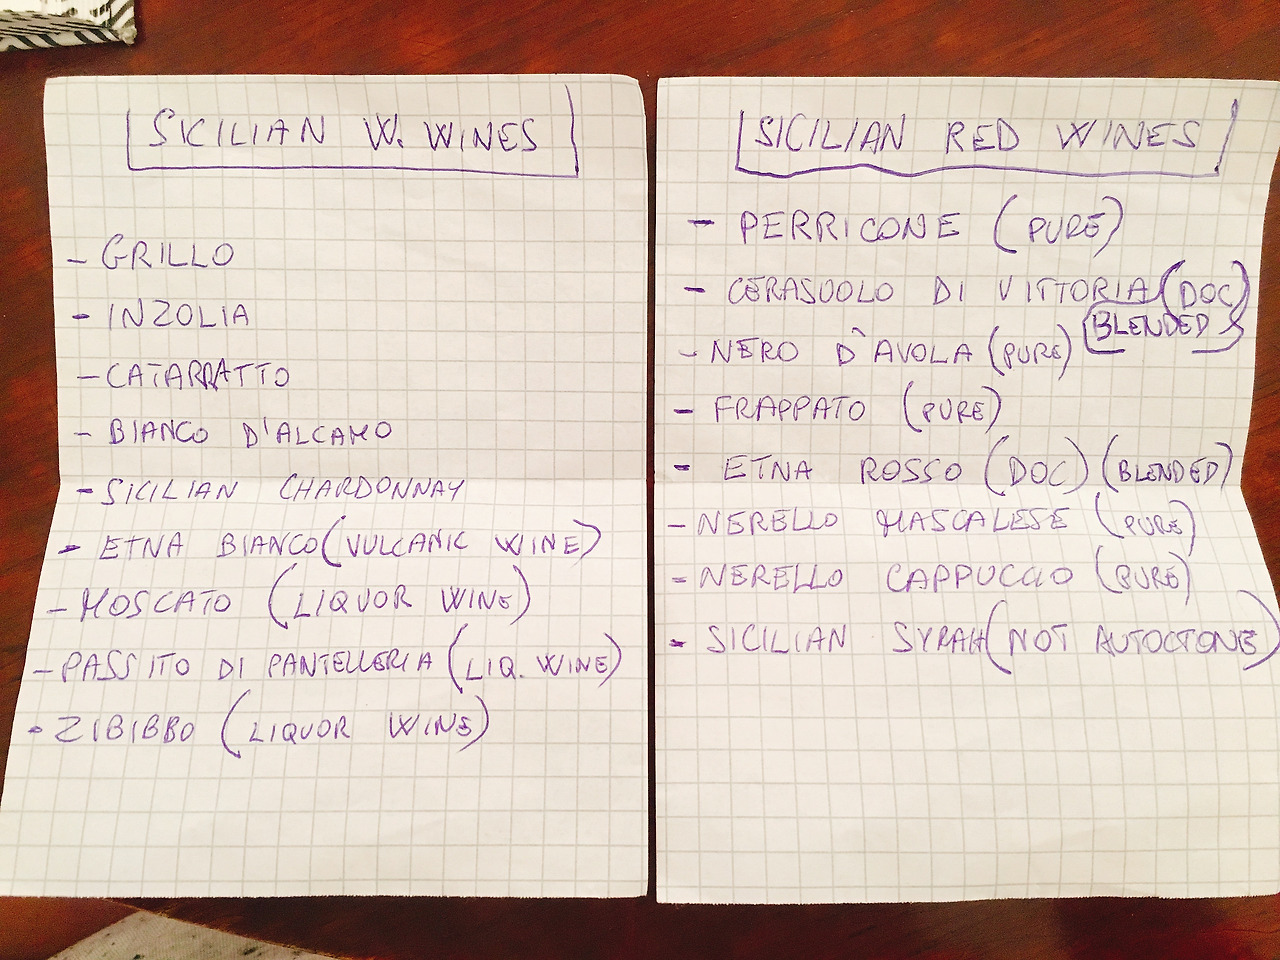 SICILIAN W. WINES
- GRILLO
- INZOLIA
- CATARRATTO
- BIANCO D'ALCAMO
- SICILIAN CHARDONNAY
- ETNA BIANCO (VULCANIC WINE)
- MOSCATO (LIQUOR WINE)
- PASSITO DI PANTELLERIA (LIQ. WINE)
- ZIBIBBO (LIQUOR WINE)
SICILIAN RED WINES
- PERRICONE (PURE)
- CERASUOLO DI VITTORIA (DOC)
(BLENDED)
- NERO D'AVOLA (PURE)
- FRAPPATO (PURE)
- ETNA ROSSO (DOC) (BLENDED)
- NERELLO MASCALESE (PURE)
- NERELLO CAPPUCCIO (PURE)
- SICILIAN SYRAH (NOT AUTOCTONE)